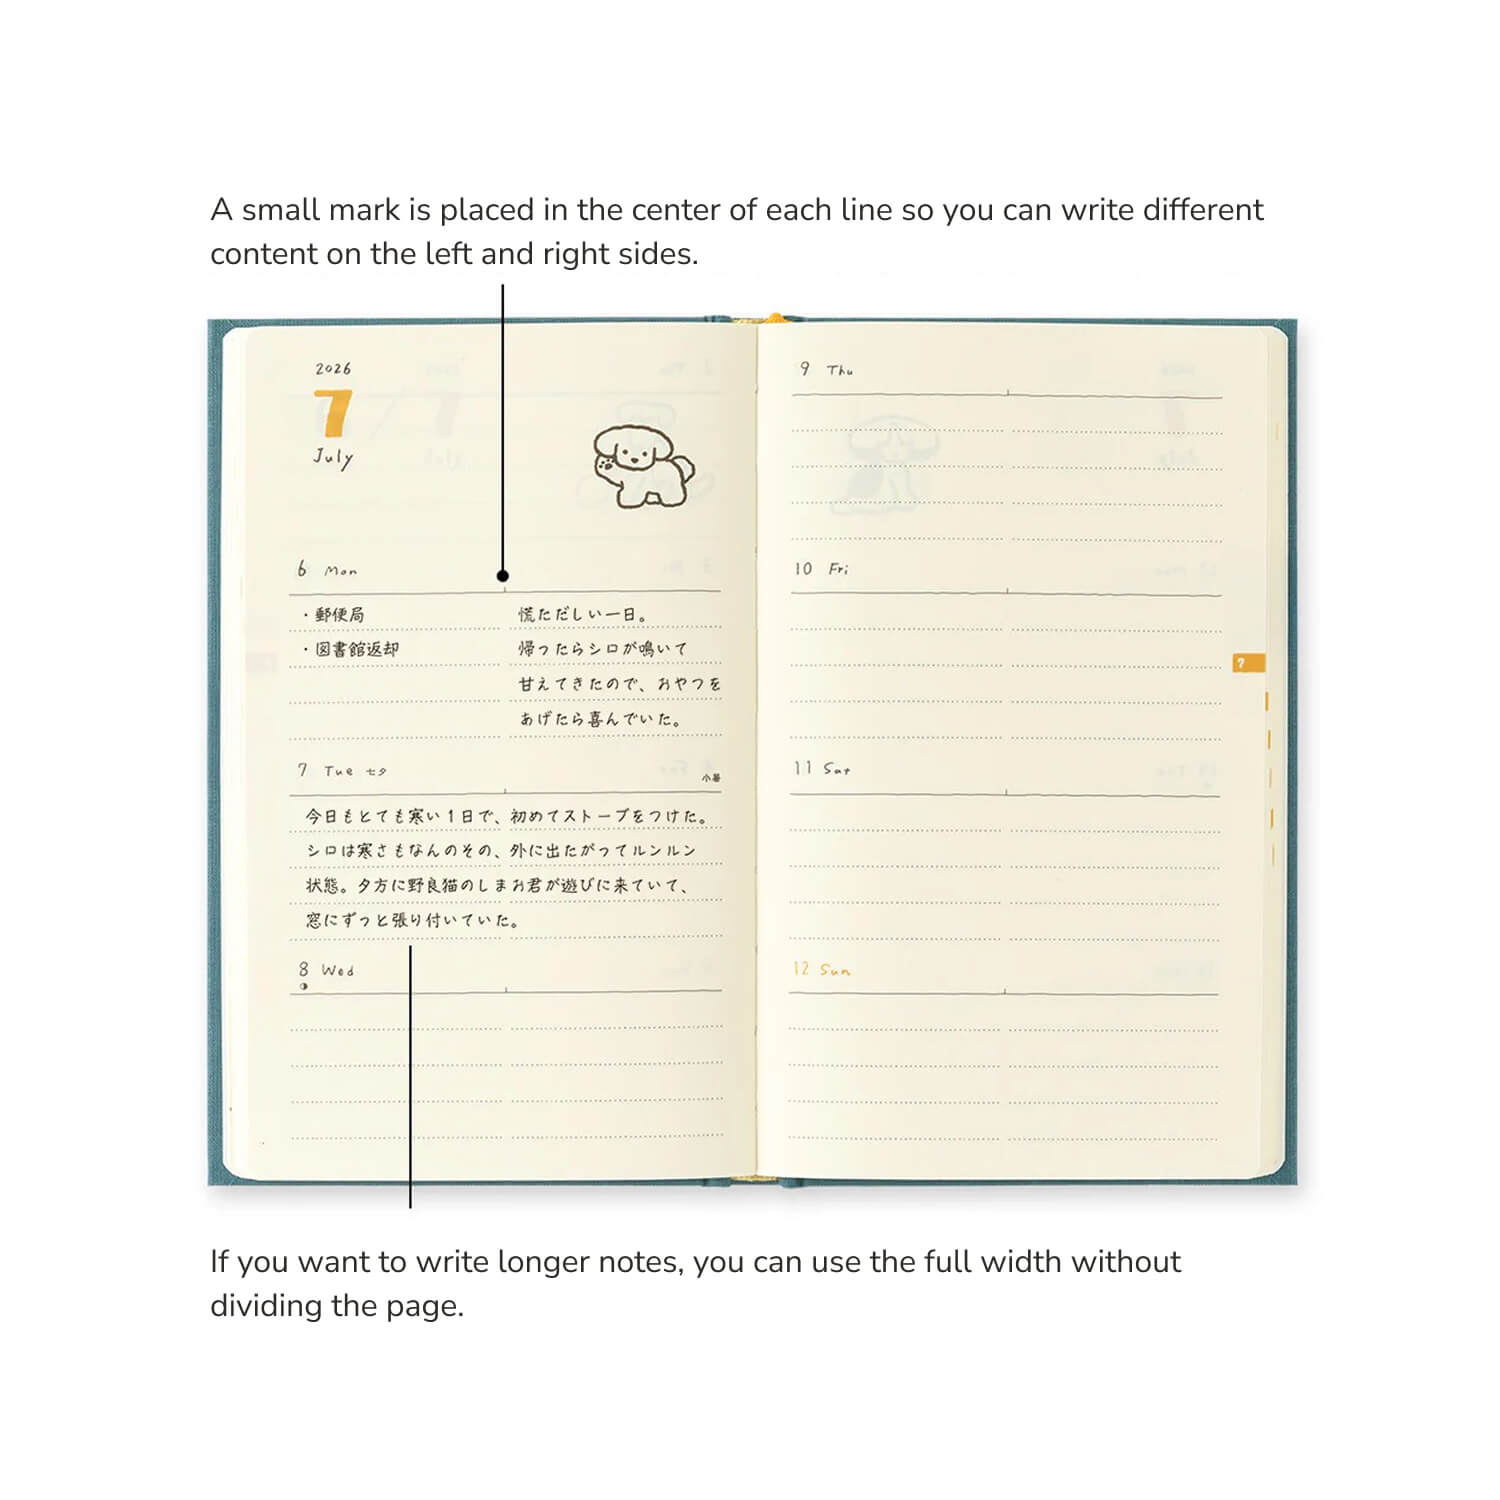 A small mark is placed in the center of each line so you can write different
content on the left and right sides.
2026
7
July
6 Mon
・郵便局
・図書館返却
慌ただしい一日。
帰ったらシロが鳴いて
甘えてきたので、おやつを
あげたら喜んでいた。
7 Tue 七夕
小暑
今日もとても寒い1日で、初めてストーブをつけた。
シロは寒さもなんのその、外に出たがってルンルン
状態。夕方に野良猫のしまお君が遊びに来ていて、
窓にずっと張り付いていた。
8 Wed
9 Thu
10 Fri
11 Sat
12 Sun
7
If you want to write longer notes, you can use the full width without
dividing the page.